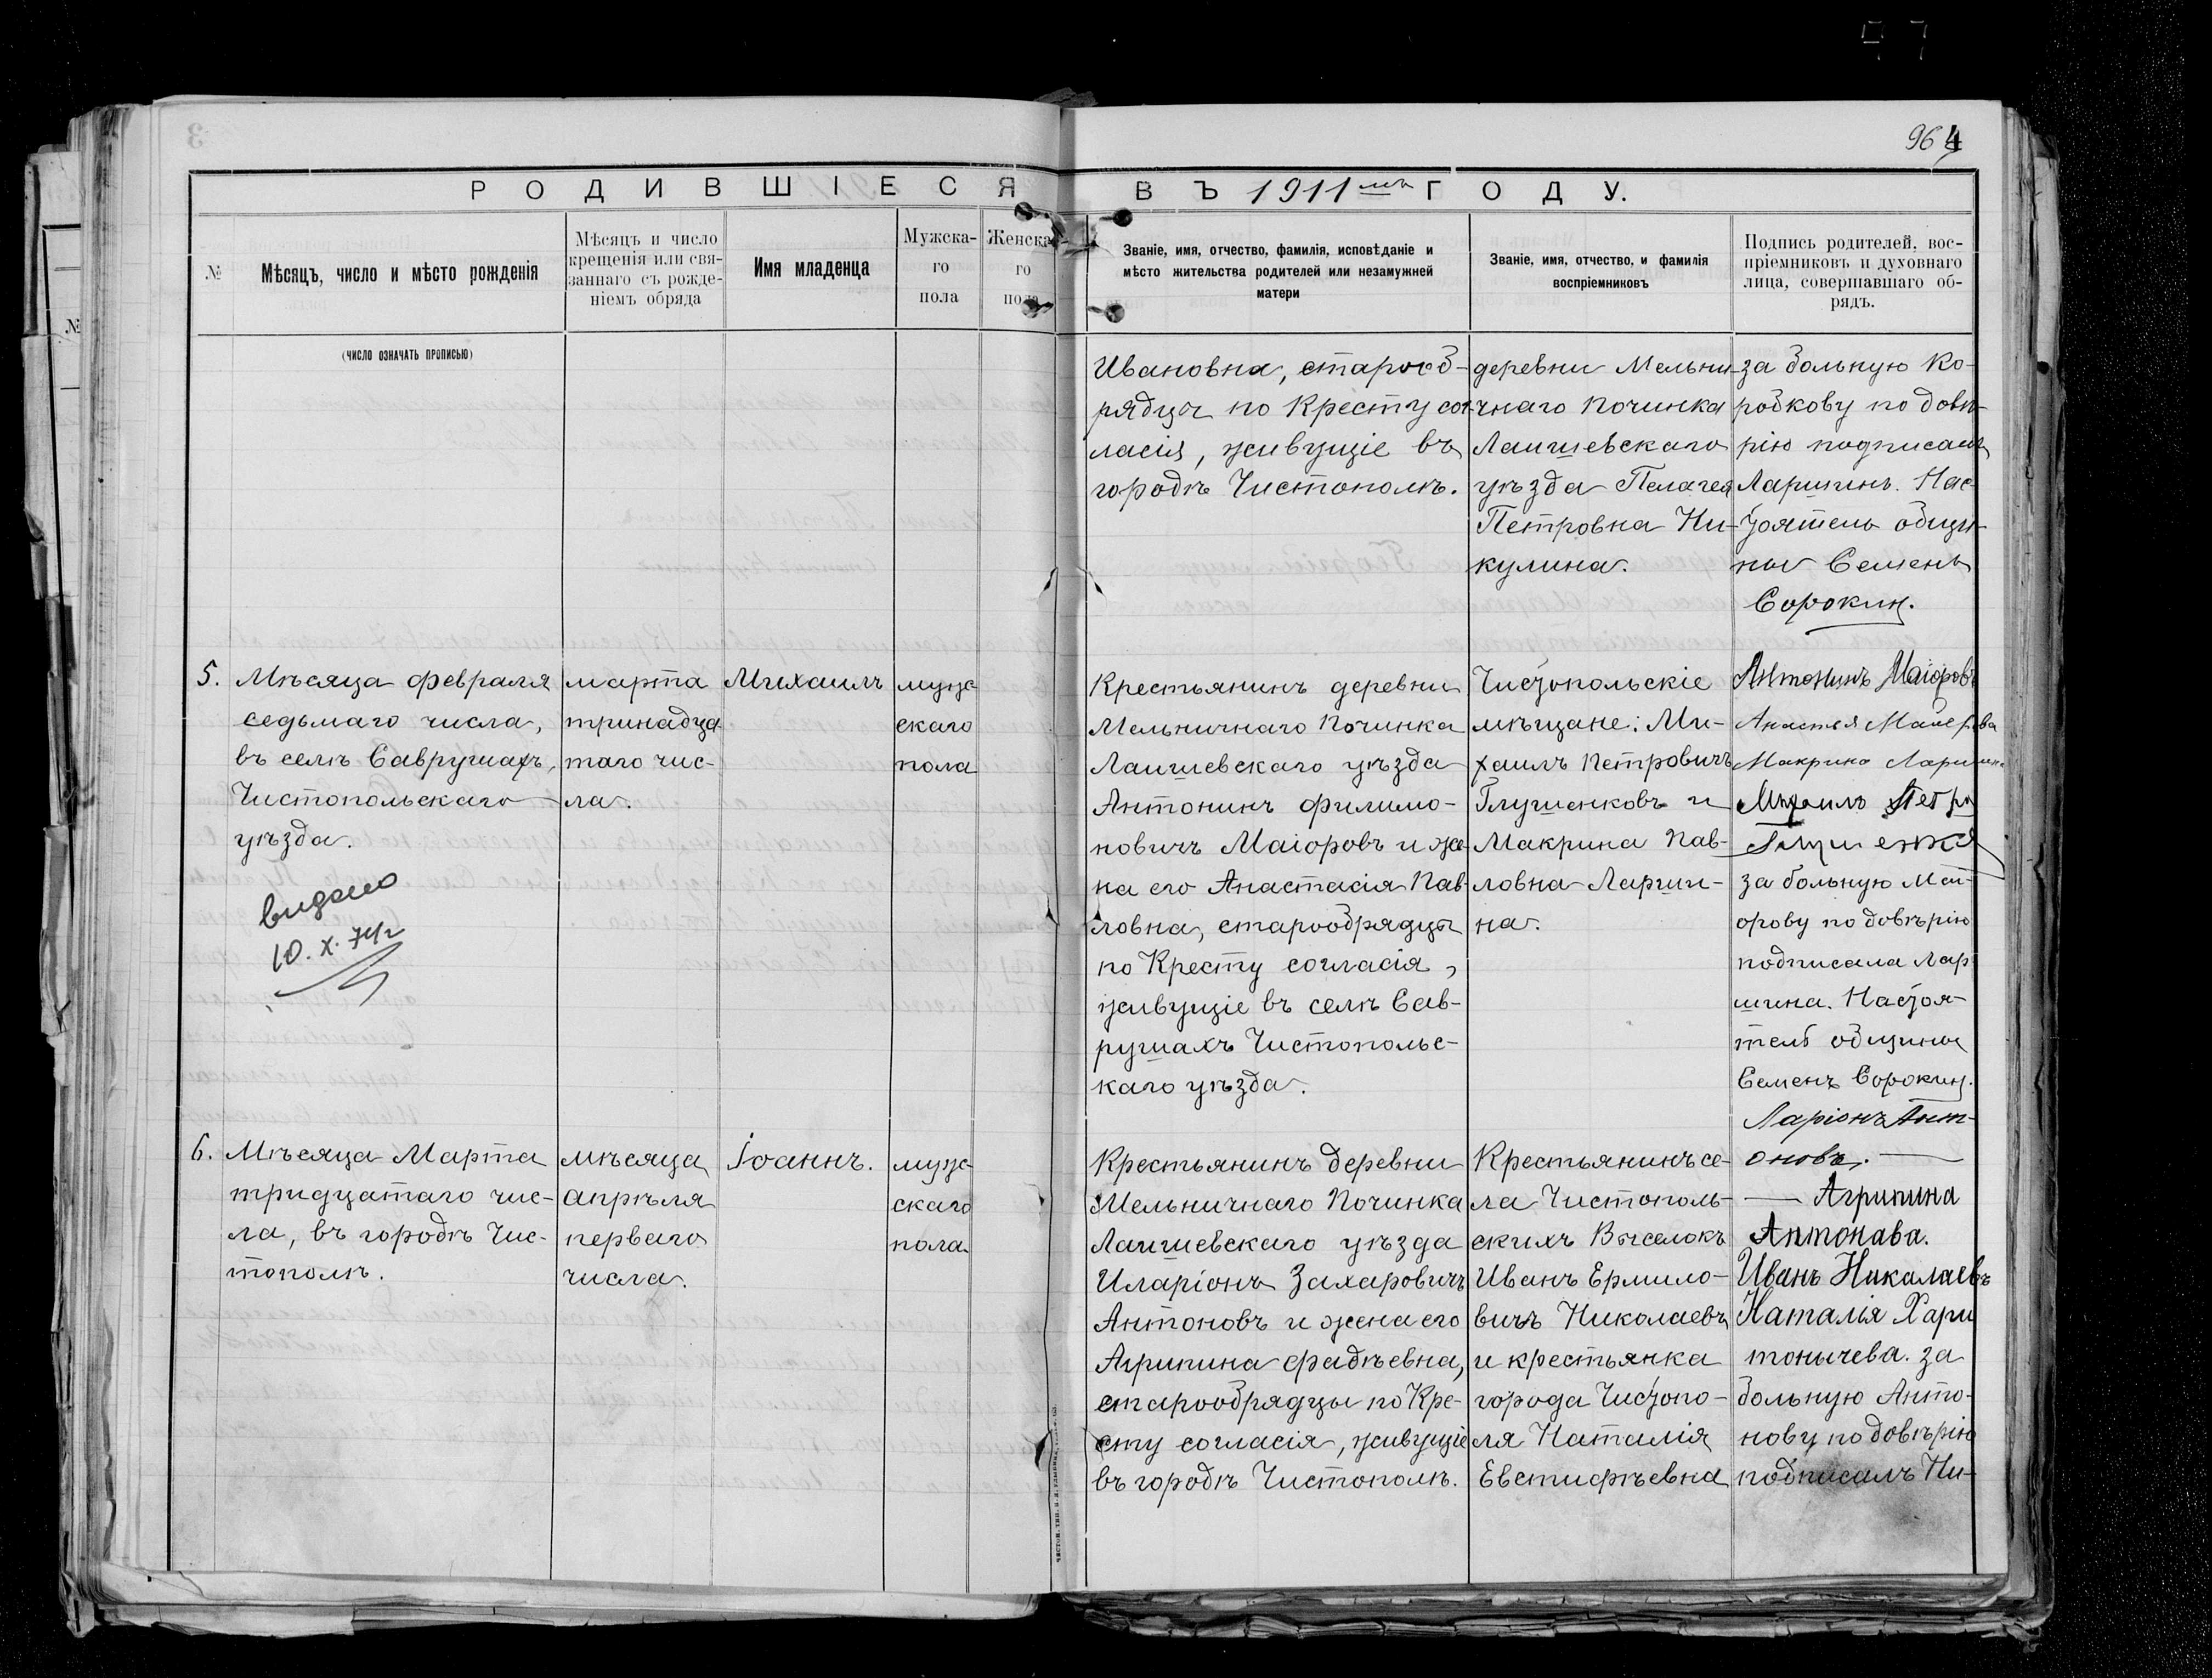 96 4
РОДИВШІЕСЯ ВЪ 1911мъ ГОДУ.
№
Мѣсяцъ, число и мѣсто рожденія
Мѣсяцъ и число
крещенія или свя-
заннаго съ рожде-
ніемъ обряда
Имя младенца
Мужска-
го
пола
Женска-
го
пола
Званіе, имя, отчество, фамилія, исповѣданіе и
мѣсто жительства родителей или незамужней
матери
Званіе, имя, отчество, и фамилія
воспріемниковъ
Подпись родителей, вос-
пріемниковъ и духовнаго
лица, совершавшаго об-
рядъ.
(число означать прописью)
Ивановна, старооб-
рядцы по Кресту сог-
ласія, живущіе въ
городѣ Чистополѣ.
деревни Мельни-
чнаго Починка
Лаишевскаго
уѣзда Пелагея
Петровна Ни-
кулина.
за больную Ко-
робкову по довѣ-
рію подписалъ
Ларишинъ. Нас-
тоятель общи-
ны Семенъ
Сорокин.
5.
Мѣсяца февраля
седьмаго числа,
въ селѣ Саврушахъ,
Чистопольскаго
уѣзда.
видано
10. X. 74г
марта
тринадца
таго чис-
ла.
Михаилъ
муж-
скаго
пола
Крестьянинъ деревни
Мельничнаго Починка
Лаишевскаго уѣзда
Антонинъ филимо-
новичъ Маіоровъ и же-
на его Анастасія Пав-
ловна, старообрядцы
по Кресту согласія,
живущіе въ селѣ Сав-
рушахъ Чистопольс-
каго уѣзда.
Чистопольскіе
мѣщане: Ми-
хаилъ Петровичъ
Глушенковъ и
Макрина Пав-
ловна Лариши-
на.
Антонинъ Маіоровъ
Анастея Маиерова
Макрина Ларишина
Михаилъ Петро
за больную Маі-
орову по довѣрію
подписала Лар
шина. Настоя-
тель общины
Семенъ Сорокин.
6.
Мѣсяца Марта
тридцатаго чис-
ла, въ городѣ Чис-
тополѣ.
мѣсяца
апрѣля
перваго
числа.
Іоаннъ.
муж-
скаго
пола
Крестьянинъ деревни
Мельничнаго Починка
Лаишевскаго уѣзда
Иларіонъ Захаровичъ
Антоновъ и жена его
Агрипина фадѣевна,
старообрядцы по Кре-
сту согласія, живущіе
въ городѣ Чистополѣ.
Крестьянинъ се-
ла Чистополь-
скихъ Выселокъ
Иванъ Ермило-
вичъ Николаевъ
и крестьянка
города Чистопо-
ля Наталія
Евстифѣевна
Ларіонъ Ант-
оновъ.
Агрипина
Антонава.
Иванъ Никалаевъ
Наталія Хари
тонычева. за
больную Анто-
нову по довѣрію
подписалъ Ни-